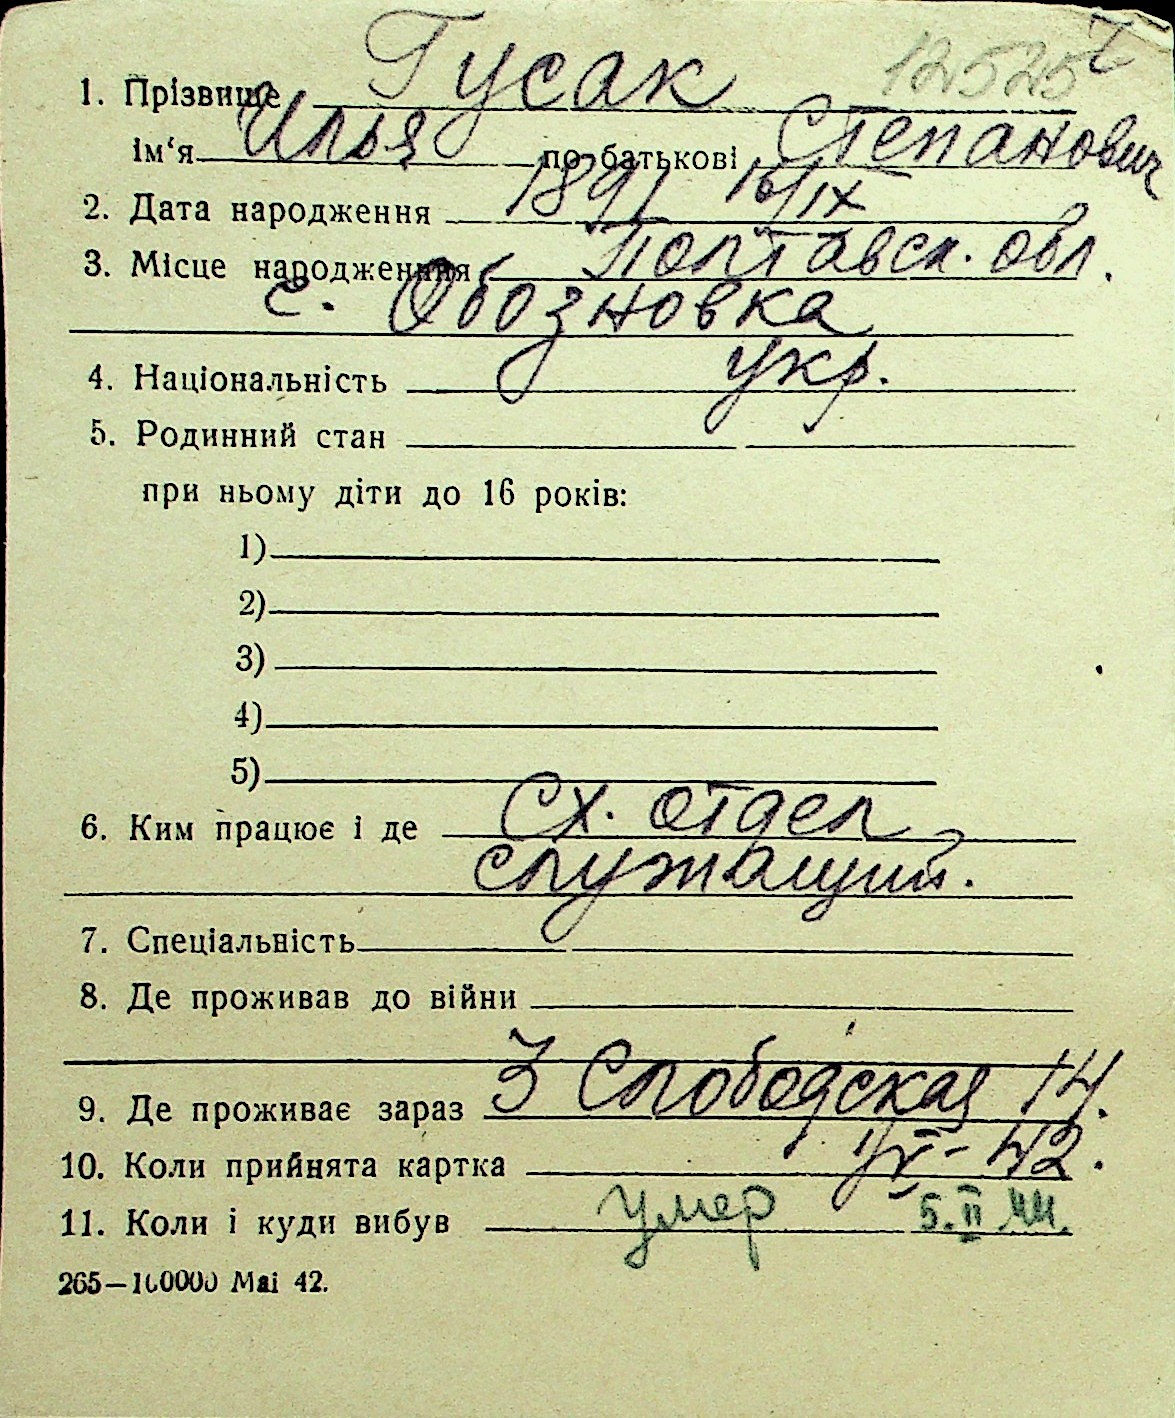 12525
1. Прізвище Гусак
ім'я Илья по батькові Степанович
2. Дата народження 1891 16/IX
3. Місце народження Полтавск. обл.
с. Обозновка
4. Національність укр.
5. Родинний стан
при ньому діти до 16 років:
1)
2)
3)
4)
5)
6. Ким працює і де Сх. отдел
служащий.
7. Спеціальність
8. Де проживав до війни
9. Де проживає зараз 3 Слободская 14.
10. Коли прийнята картка 42.
11. Коли і куди вибув умер 5.II 44.
265—100000 Mai 42.